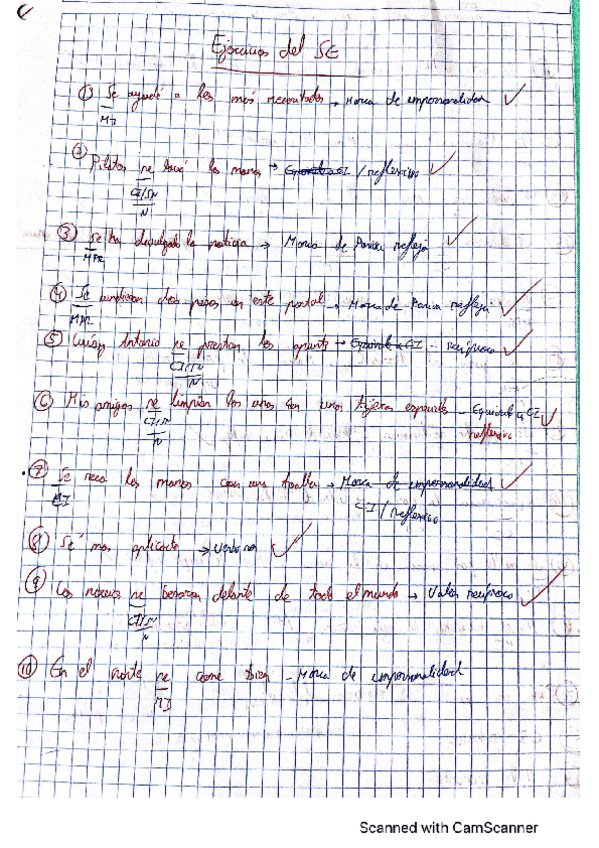 Ejercicios del SE
① Se ayudó a los más necesitados → Marca de impersonalidad
MI
② Pilatos se lavó las manos → CI / reflexivo
CI/SN
N
③ Se ha divulgado la noticia → Marca de Pasiva refleja
MPR
④ Se vendieron dos pisos en este portal → Marca de Pasiva refleja
MPR
⑤ Luis y Antonio se prestan los apuntes → Equivale a CI - recíproco
CI/SN
N
⑥ Mis amigos se limpian las uñas con unas tijeras especiales - Equivale a CI
CI/SN reflexivo
N
⑦ Se seca las manos con una toalla → Marca de impersonalidad
CI CI / reflexivo
⑧ Sé más aplicado → Verbo ser
⑨ Los novios se besaron delante de todo el mundo → Valor recíproco
CI/SN
N
⑩ En el norte se come bien - Marca de impersonalidad
MI
Scanned with CamScanner